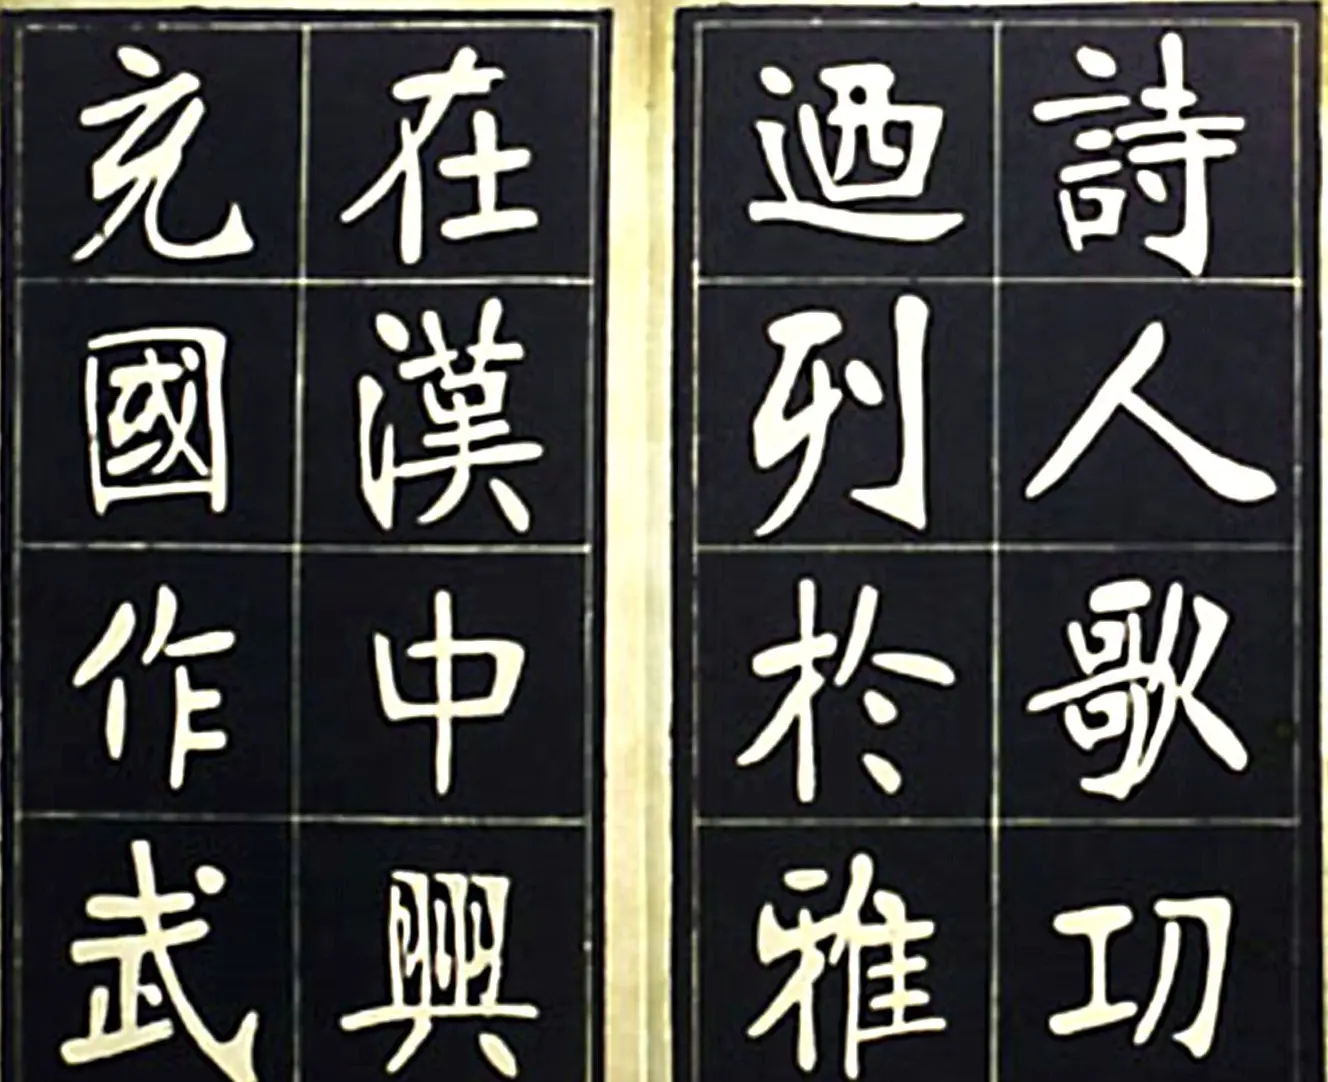 詩人歌功
迺列於雅
在漢中興
充國作武